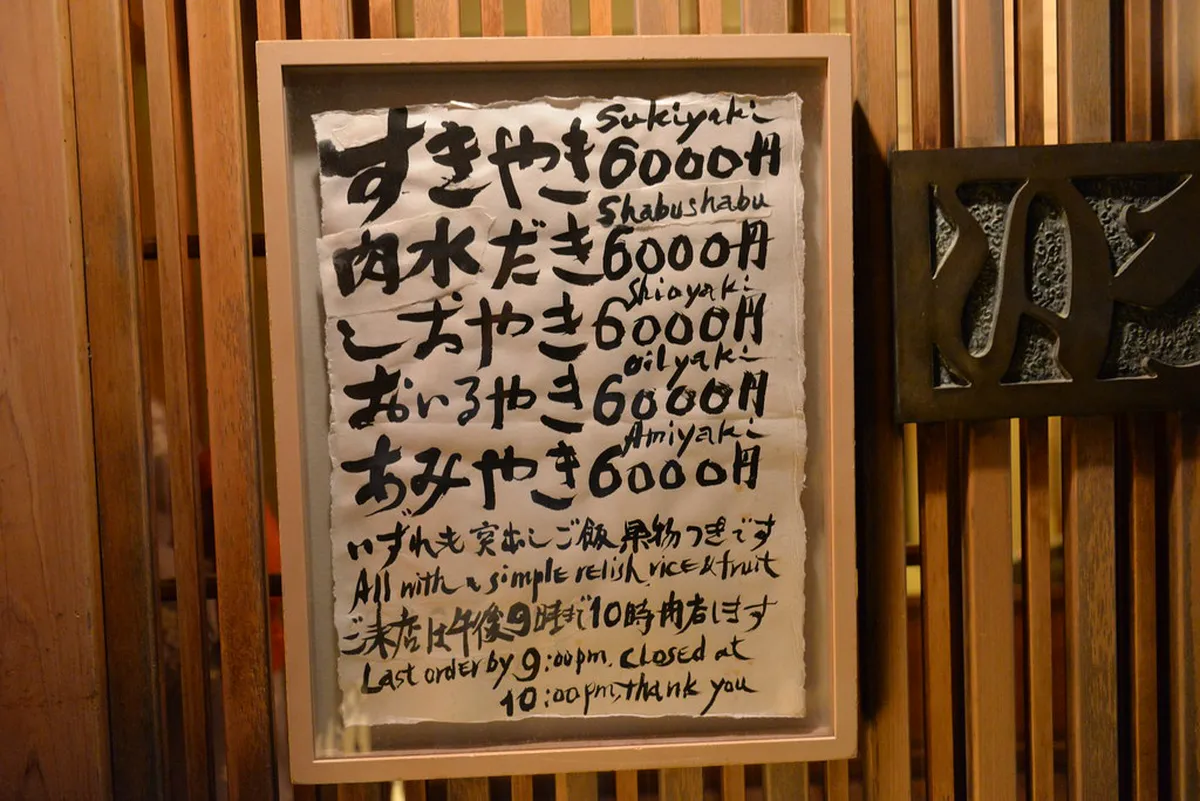 Sukiyaki
すきやき 6000円
Shabushabu
肉水だき 6000円
Shioyaki
しおやき 6000円
oilyaki
おいるやき 6000円
Amiyaki
あみやき 6000円
いずれも突出しご飯果物つきです
All with a simple relish, rice & fruit
ご来店は午後9時まで10時閉店します
Last order by 9:00pm. Closed at
10:00pm, thank you